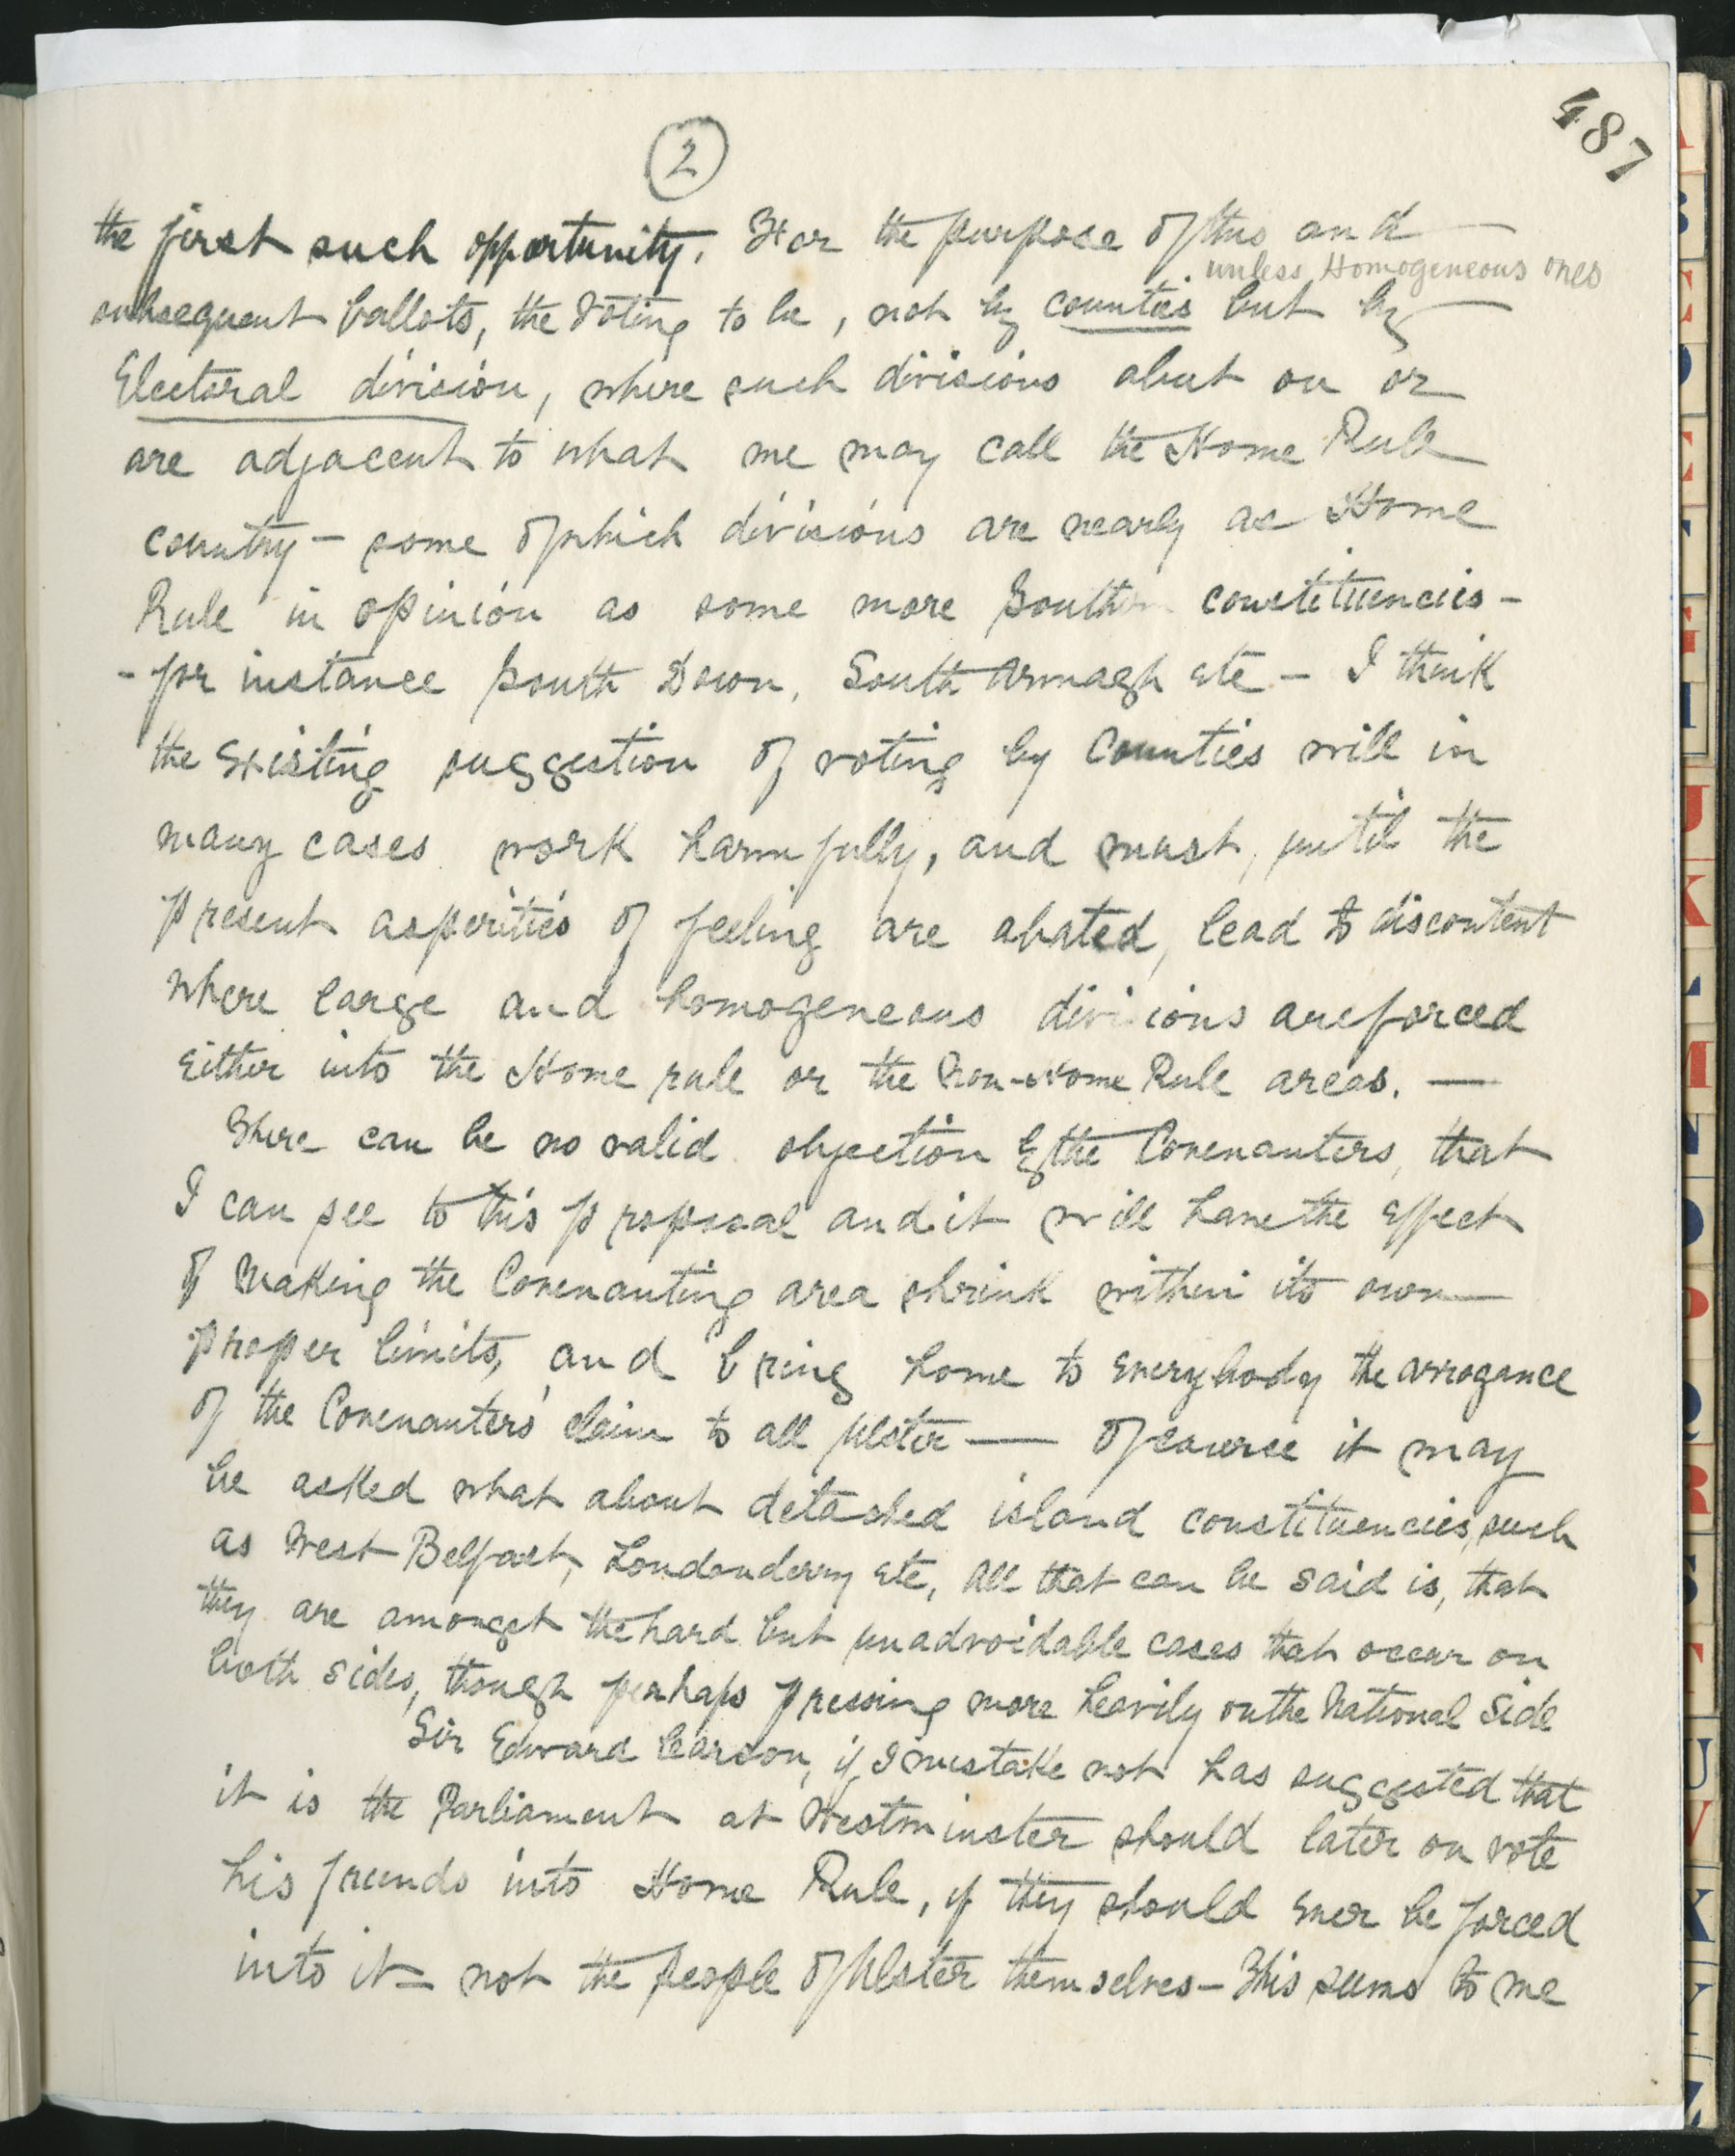 487
2
the first such opportunity. For the purpose of this and
unless Homogeneous ones
subsequent ballots, the voting to be, not by counties but by
Electoral division, where such divisions abut on or
are adjacent to what me may call the Home Rule
country - some of which divisions are nearly as Home
Rule in opinion as some more Southern constituencies -
- for instance South Down, South Armagh etc - I think
the existing suggestion of voting by Counties will in
many cases work harmfully, and must, until the
present asperities of feeling are abated, lead to discontent
where large and homogeneous divisions are forced
either into the Home rule or the Non-Home Rule areas. —
There can be no valid objection by the Covenanters, that
I can see to this proposal and it will have the effect
of making the Covenanting area shrink within its own
proper limits, and bring home to everybody the arrogance
of the Covenanters' claim to all Ulster — Of course it may
be asked what about detached island constituencies, such
as West Belfast, Londonderry etc, All that can be said is, that
they are amongst the hard but unadvoidable cases that occur on
both sides, though perhaps pressing more heavily on the National Side
Sir Edward Carson, if I mistake not has suggested that
it is the Parliament at Westminster should later on vote
his friends into Home Rule, if they should ever be forced
into it - not the people of Ulster themselves - This seems to me